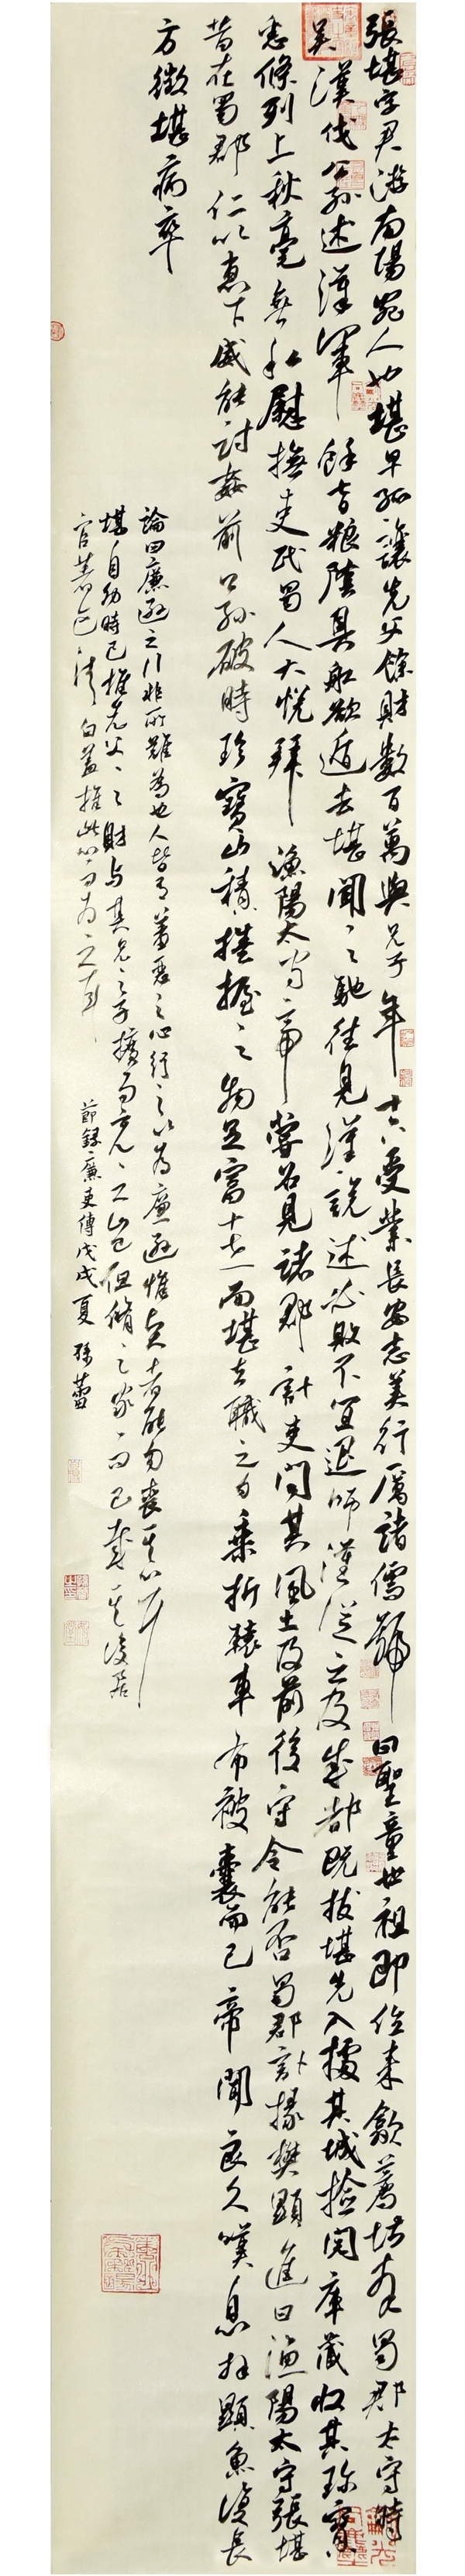 張堪字君游南陽宛人也堪早孤讓先父餘財數百萬與兄子年十六受業長安志美行厲諸儒號曰聖童世祖即位來歙薦堪拜蜀郡太守時
吳漢伐公孫述漢軍餘七日粮陰具船欲遁去堪聞之馳往見漢說述必敗不宜退師漢從之及成都既拔堪先入據其城撿閱庫藏收其珍寶
悉條列上秋毫無私慰撫吏民蜀人大悅拜漁陽太守帝嘗召見諸郡計吏問其風土及前後守令能否蜀郡計掾樊顯進曰漁陽太守張堪
昔在蜀郡仁以惠下威能討姦前公孫破時珍寶山積捲握之物足富十世而堪去職之日乘折轅車布被囊而已帝聞良久嘆息拜顯魚復長
方徵堪病卒
論曰廉遜之行非所難為也人皆有羞惡之心行之以為廉遜惟賢者能勿喪其心耳
堪自幼時已推先父之財與其兄之子擴而充之不必但脩之家而已成其後居
官恭己清白蓋推此心而為之耳
節錄廉吏傳戊戌夏 孫蕾